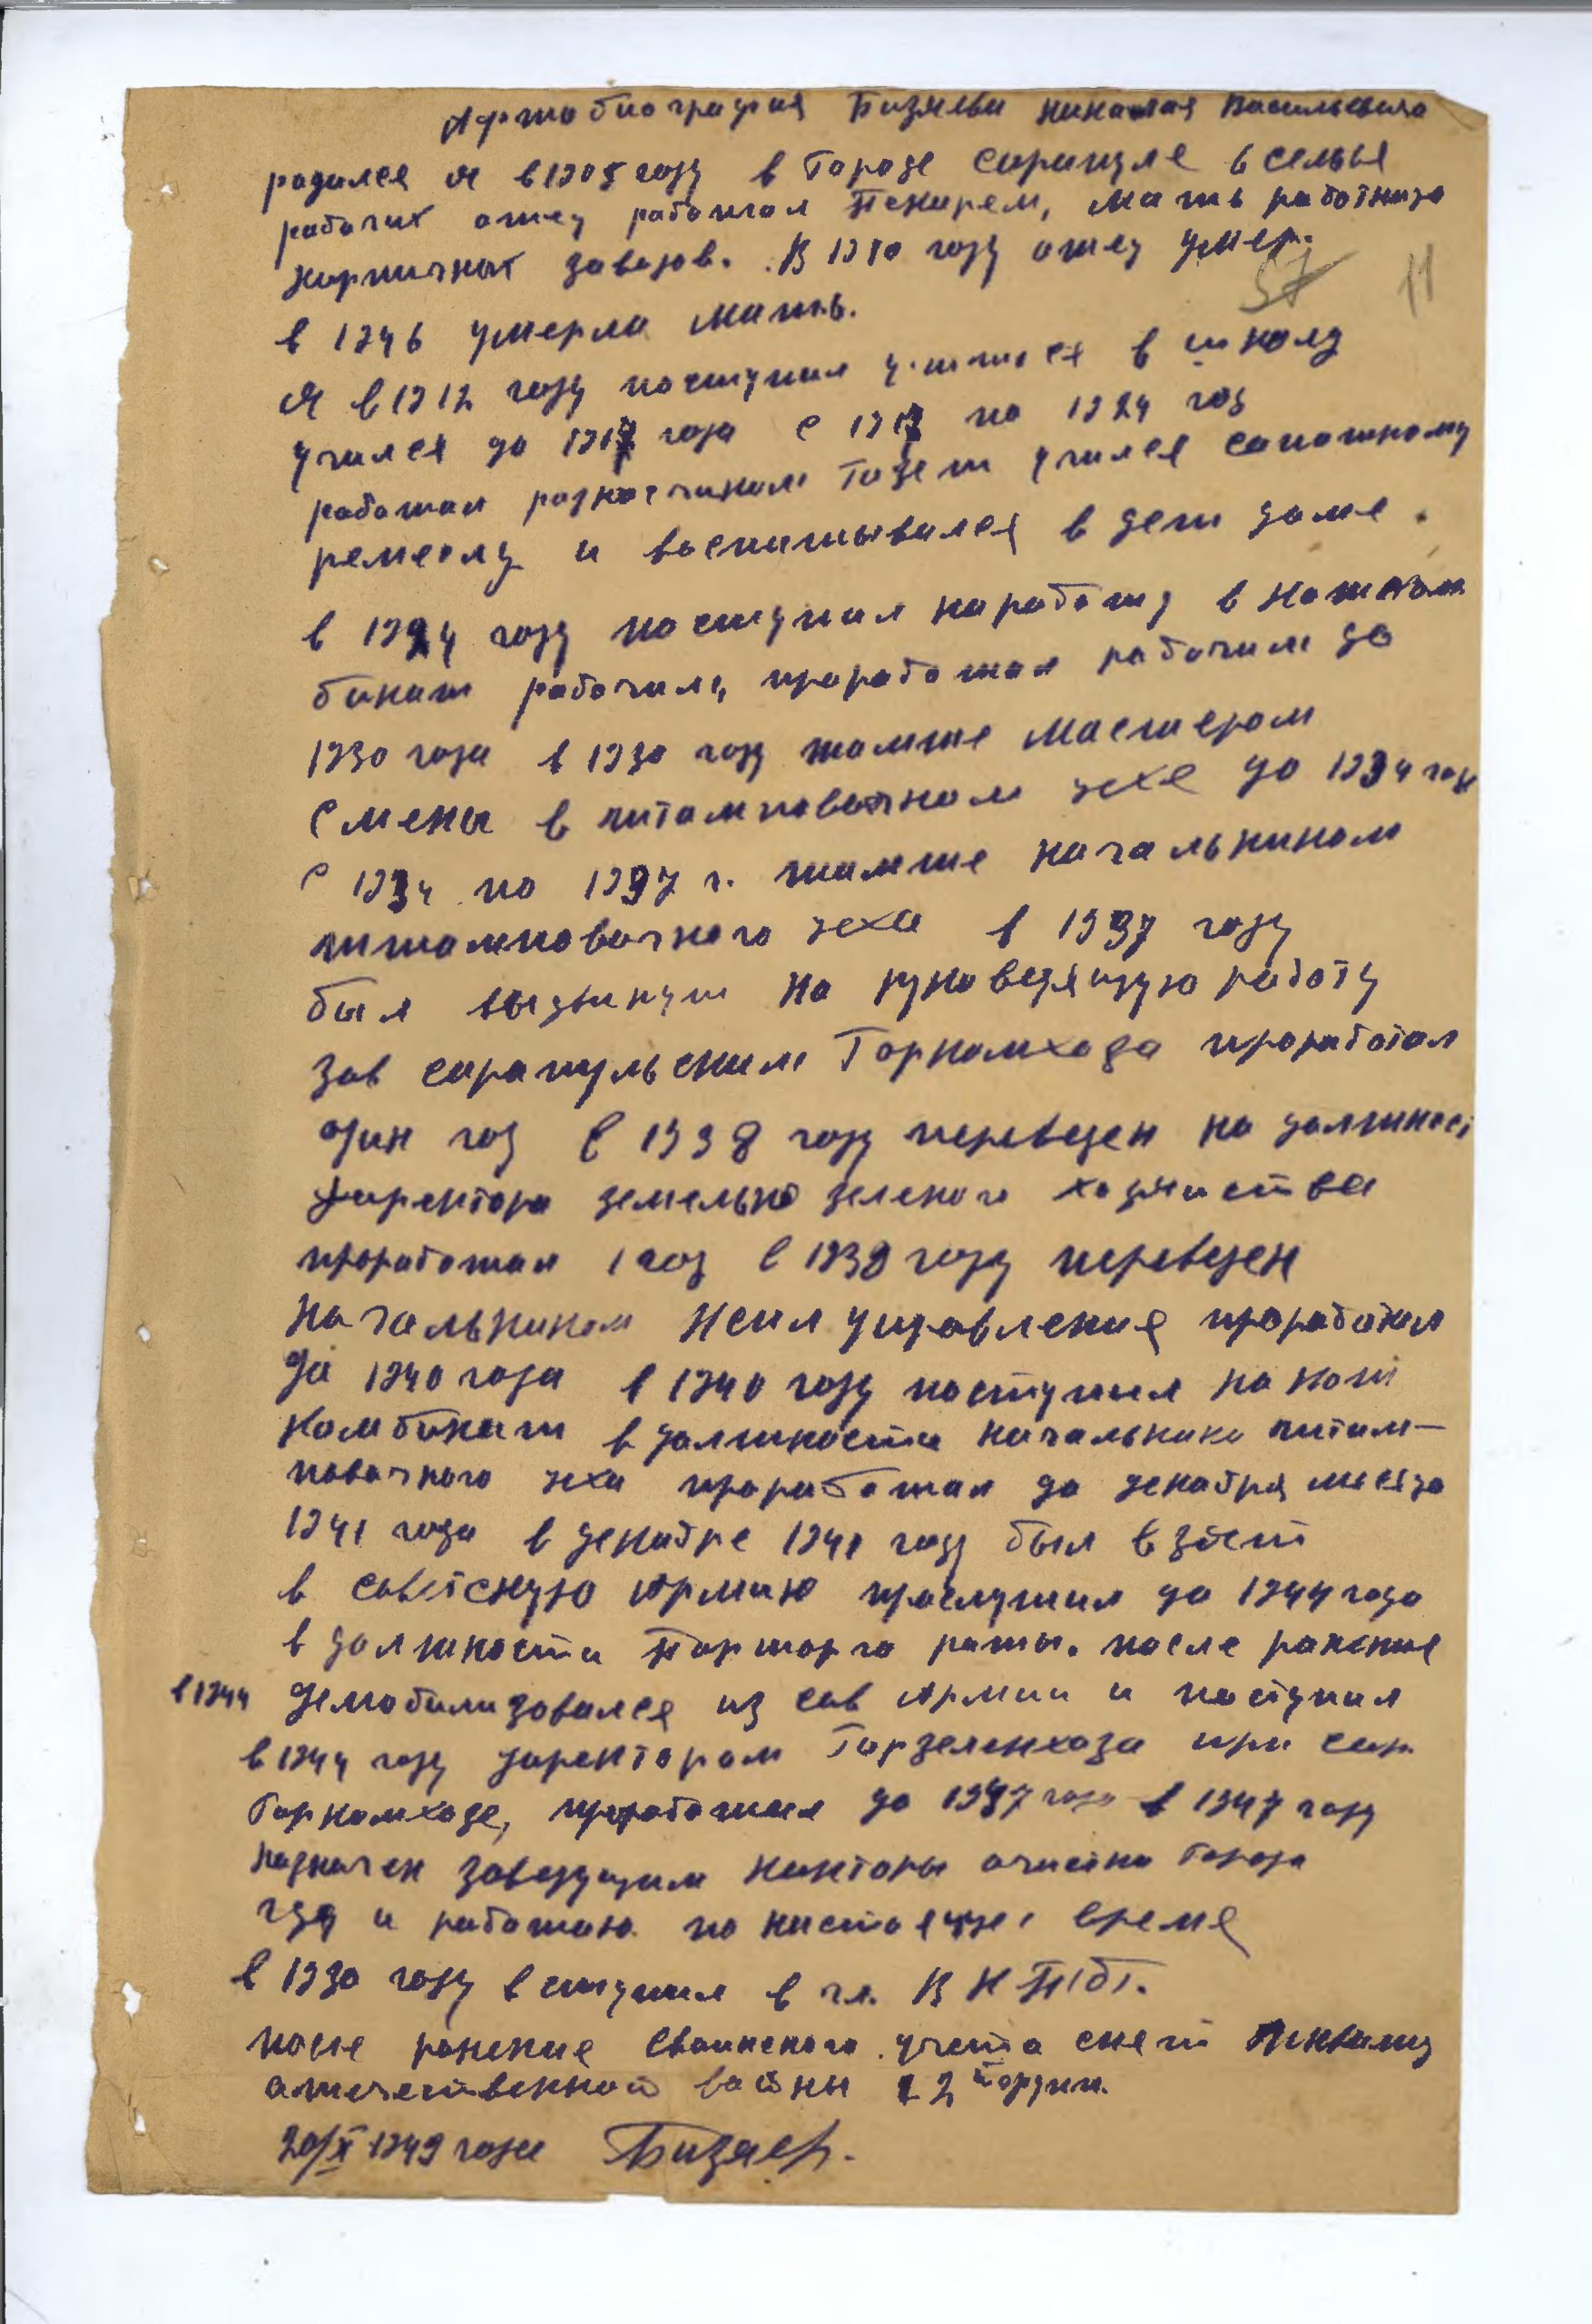 Афтобиография Бизяева Николая Васильевича
родился я в 1905 году в Городе Сарапуле в семье
рабочих отец работал Пекарем, мать работница
кирпичных заводов. В 1910 году отец умер.
57 11
в 1946 умерла мать.
я в 1912 году поступил учится в школу
учился до 1917 года с 1917 по 1924 год
работал разносчиком Газет учился сапожному
ремеслу и воспитывался в дет доме.
в 1924 году поступил на работу в кожком
бинат рабочим, проработал рабочим до
1930 года в 1930 году томже мастером
смены в штамповочном цехе до 1934 года
с 1934 по 1937 г. томже начальником
штамповочного цеха в 1937 году
был выдвинут на руководящую работу
зав сарапульским Горкомхоза проработал
один год в 1938 году переведен на должност
директора земельно зеленого хозяиства
проработал 1 год в 1939 году переведен
начальником жил управления проработал
до 1940 года в 1940 году поступил на кож
комбинат в должности начальника штам-
повочного цеха проработал до декабря месяца
1941 года в декабре 1941 году был взят
в советскую Армию прослужил до 1944 года
в должности Парторга роты. после ранение
в 1944 демобилизовался из сов Армии и поступил
в 1944 году директором Горзеленхоза при сар.
Горкомхозе, проработал до 1947 года в 1947 году
назначен заведущим конторы очистки Города
где и работаю по настоящее время
в 1930 году вступил в чл. В К П(б).
после ранение свойнского учета снят Инвалид
отечественной войны 2 группы.
20/X 1949 года Бизяев.